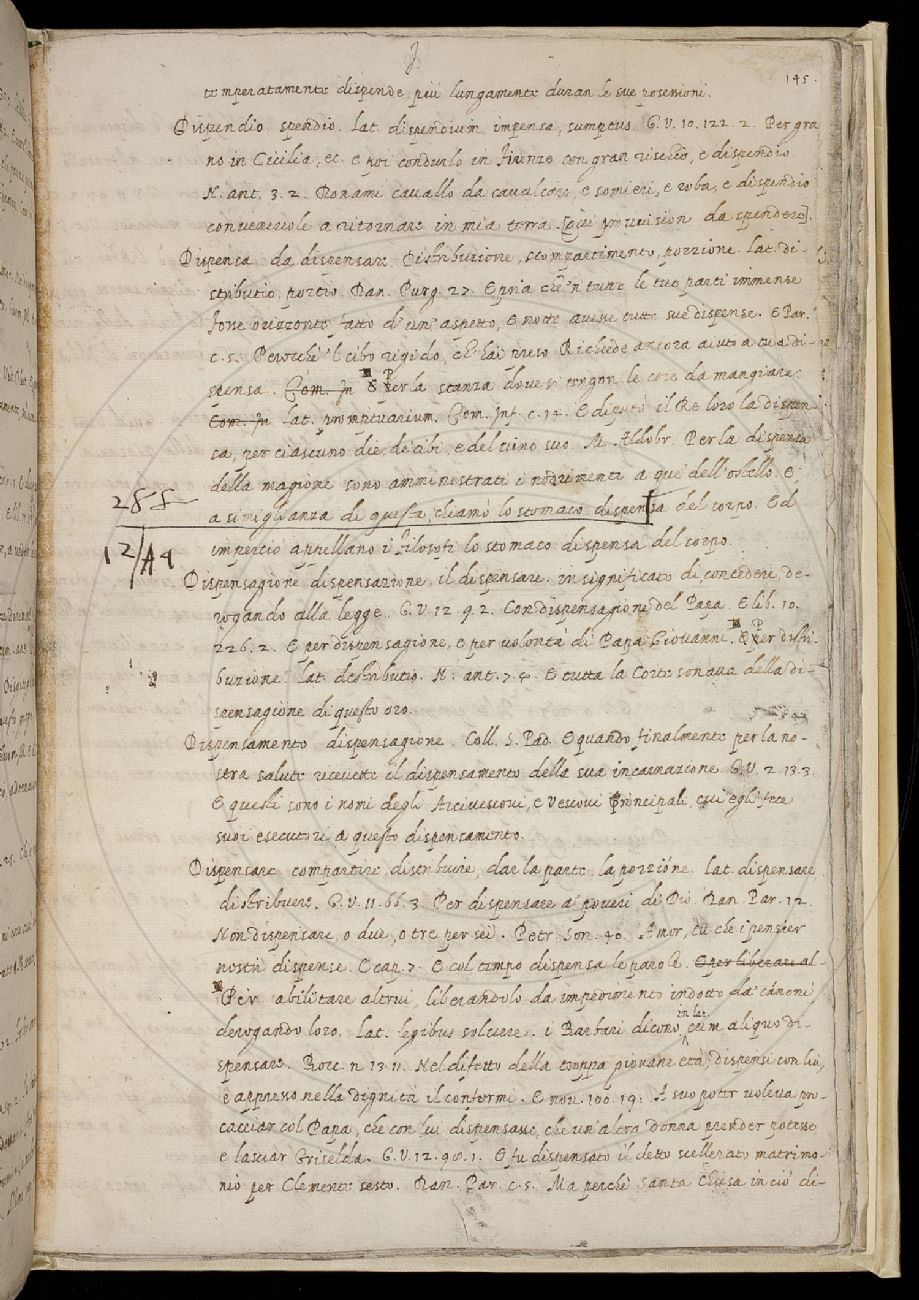 145.
temperatamente dispende, più lungamente duran le sue possessioni.
Dispendio spendio. Lat. dispendium, impensa, sumptus. G. V. 10. 122. 2. Per gra
no in Cicilia, ec. e poi condurlo in Firenze con gran rischio, e dispendio
N. ant. 3. 2. Poname cavallo da cavalcare, e somieri, e roba, e dispendio
convenevole a ritornare in mia terra [qui provvision da spendere].
Dispensa da dispensare. Distribuzione, scompartimento, porzione. lat. di-
stributio, portio. Dan. Purg. 27. E pria che 'n tutte le sue parti immense
Fosse orizzonte fatto d' un' aspetto, E notte avesse tutte sue dispense. E Par.
c. 5. Perocche 'l cibo rigido, ch' hai preso Richiede ancora aiuto a tua di-
spensa. Com. In E Per la stanza dove si tengon le cose da mangiare.
Com. In lat. promptuarium. Com. Inf. c. 14. E diputò il Re loro la dispen
sa, per ciascuno die, de' cibi, e del vino suo. M. Aldobr. Per la dispensa
della magione sono amministrati i nodrimenti a que' dell' ostello. E,
a simiglianza di questa, chiamò lo stomaco dispensa del corpo. Ed
288
imperciò appellano i filosofi lo stomaco dispensa del corpo.
12/A4
Dispensagione dispensazione, il dispensare. in significato di concedere, de-
rogando alla legge. G. V. 12. 9. 2. Con dispensagione del Papa. E lib. 10.
226. 2. E per dispensagione, e per volontà di Papa Giovanni. E Per distri-
buzione. lat. distributio. N. ant. 7. 4. E tutta la Corte sonava della di-
spensagione di questo oro.
Dispensamento dispensagione. Coll. S. Pad. E quando finalmente per la no-
stra salute ricevette il dispensamento della sua incarnazione. G. V. 2. 13. 3.
E questi sono i nomi degli Arcivescovi, e Vescovi Principali, cui egli fece
suoi esecutori a questo dispensamento.
Dispensare compartire, distribuire, dar la parte, la porzióne. lat. dispensare
distribuere. G. V. 11. 66. 3. Per dispensare a' poveri di Dio. Dan. Par. 12.
Non dispensare, o due, o tre per sei. Petr. Son. 40. Amor, tu che i pensier
nostri dispense. E cap. 7. E col tempo dispensa le parole. E per liberare al-
Per abilitare altrui, liberandolo da impedimento indotto da' cánoni,
derogando loro. lat. legibus solvere. i Barbari dicono in lat. cum aliquo di-
spensare. Bocc. n. 13. 11. Nel difetto della troppa giovane età, dispensi con lui,
e appresso nella dignità il confermi. E nov. 100. 19. A suo poter voleva pro-
cacciar col Papa, che con lui dispensasse, che un' altra donna prender potesse,
e lasciar Griselda. G. V. 12. 98. 1. E fu dispensato il detto scellerato matrimo-
nio per Clemente sesto. Dan. Par. c. 5. Ma perchè Santa Chiesa in ciò di-